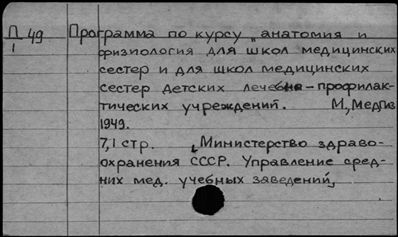 П 49 Программа по курсу „анатомия и
1 физиология для школ медицинских
сестер и для школ медицинских
сестер детских лечебно-профилак-
тических учреждений. М., Медгиз
1949.
7,1 стр. [Министерство здраво-
охранения СССР. Управление сред-
них мед. учебных заведений]